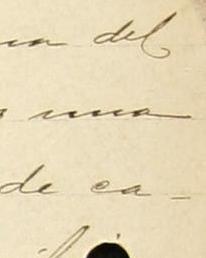 del
una
de ca-